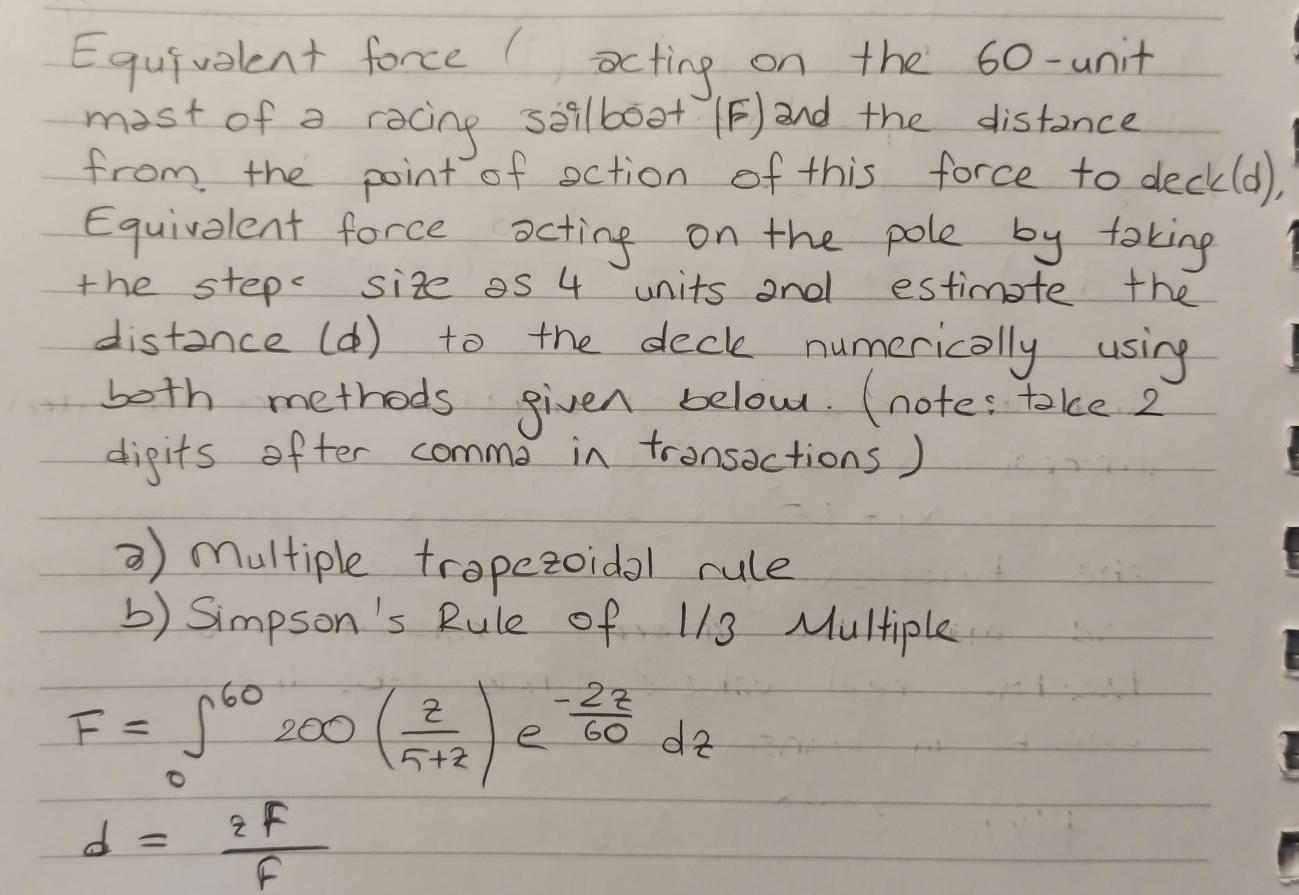 Equivalent force ( acting on the 60-unit
mast of a racing sailboat (F) and the distance
from the point of action of this force to deck(d),
Equivalent force acting on the pole by taking
the steps size as 4 units and estimate the
distance (d) to the deck numerically using
both methods given below. (note: take 2
digits after comma in transactions)
a) Multiple trapezoidal rule
b) Simpson's Rule of 1/3 Multiple
F = ∫₀⁶⁰ 200 (z/(5+z)) e^(-2z/60) dz
d = zF/F